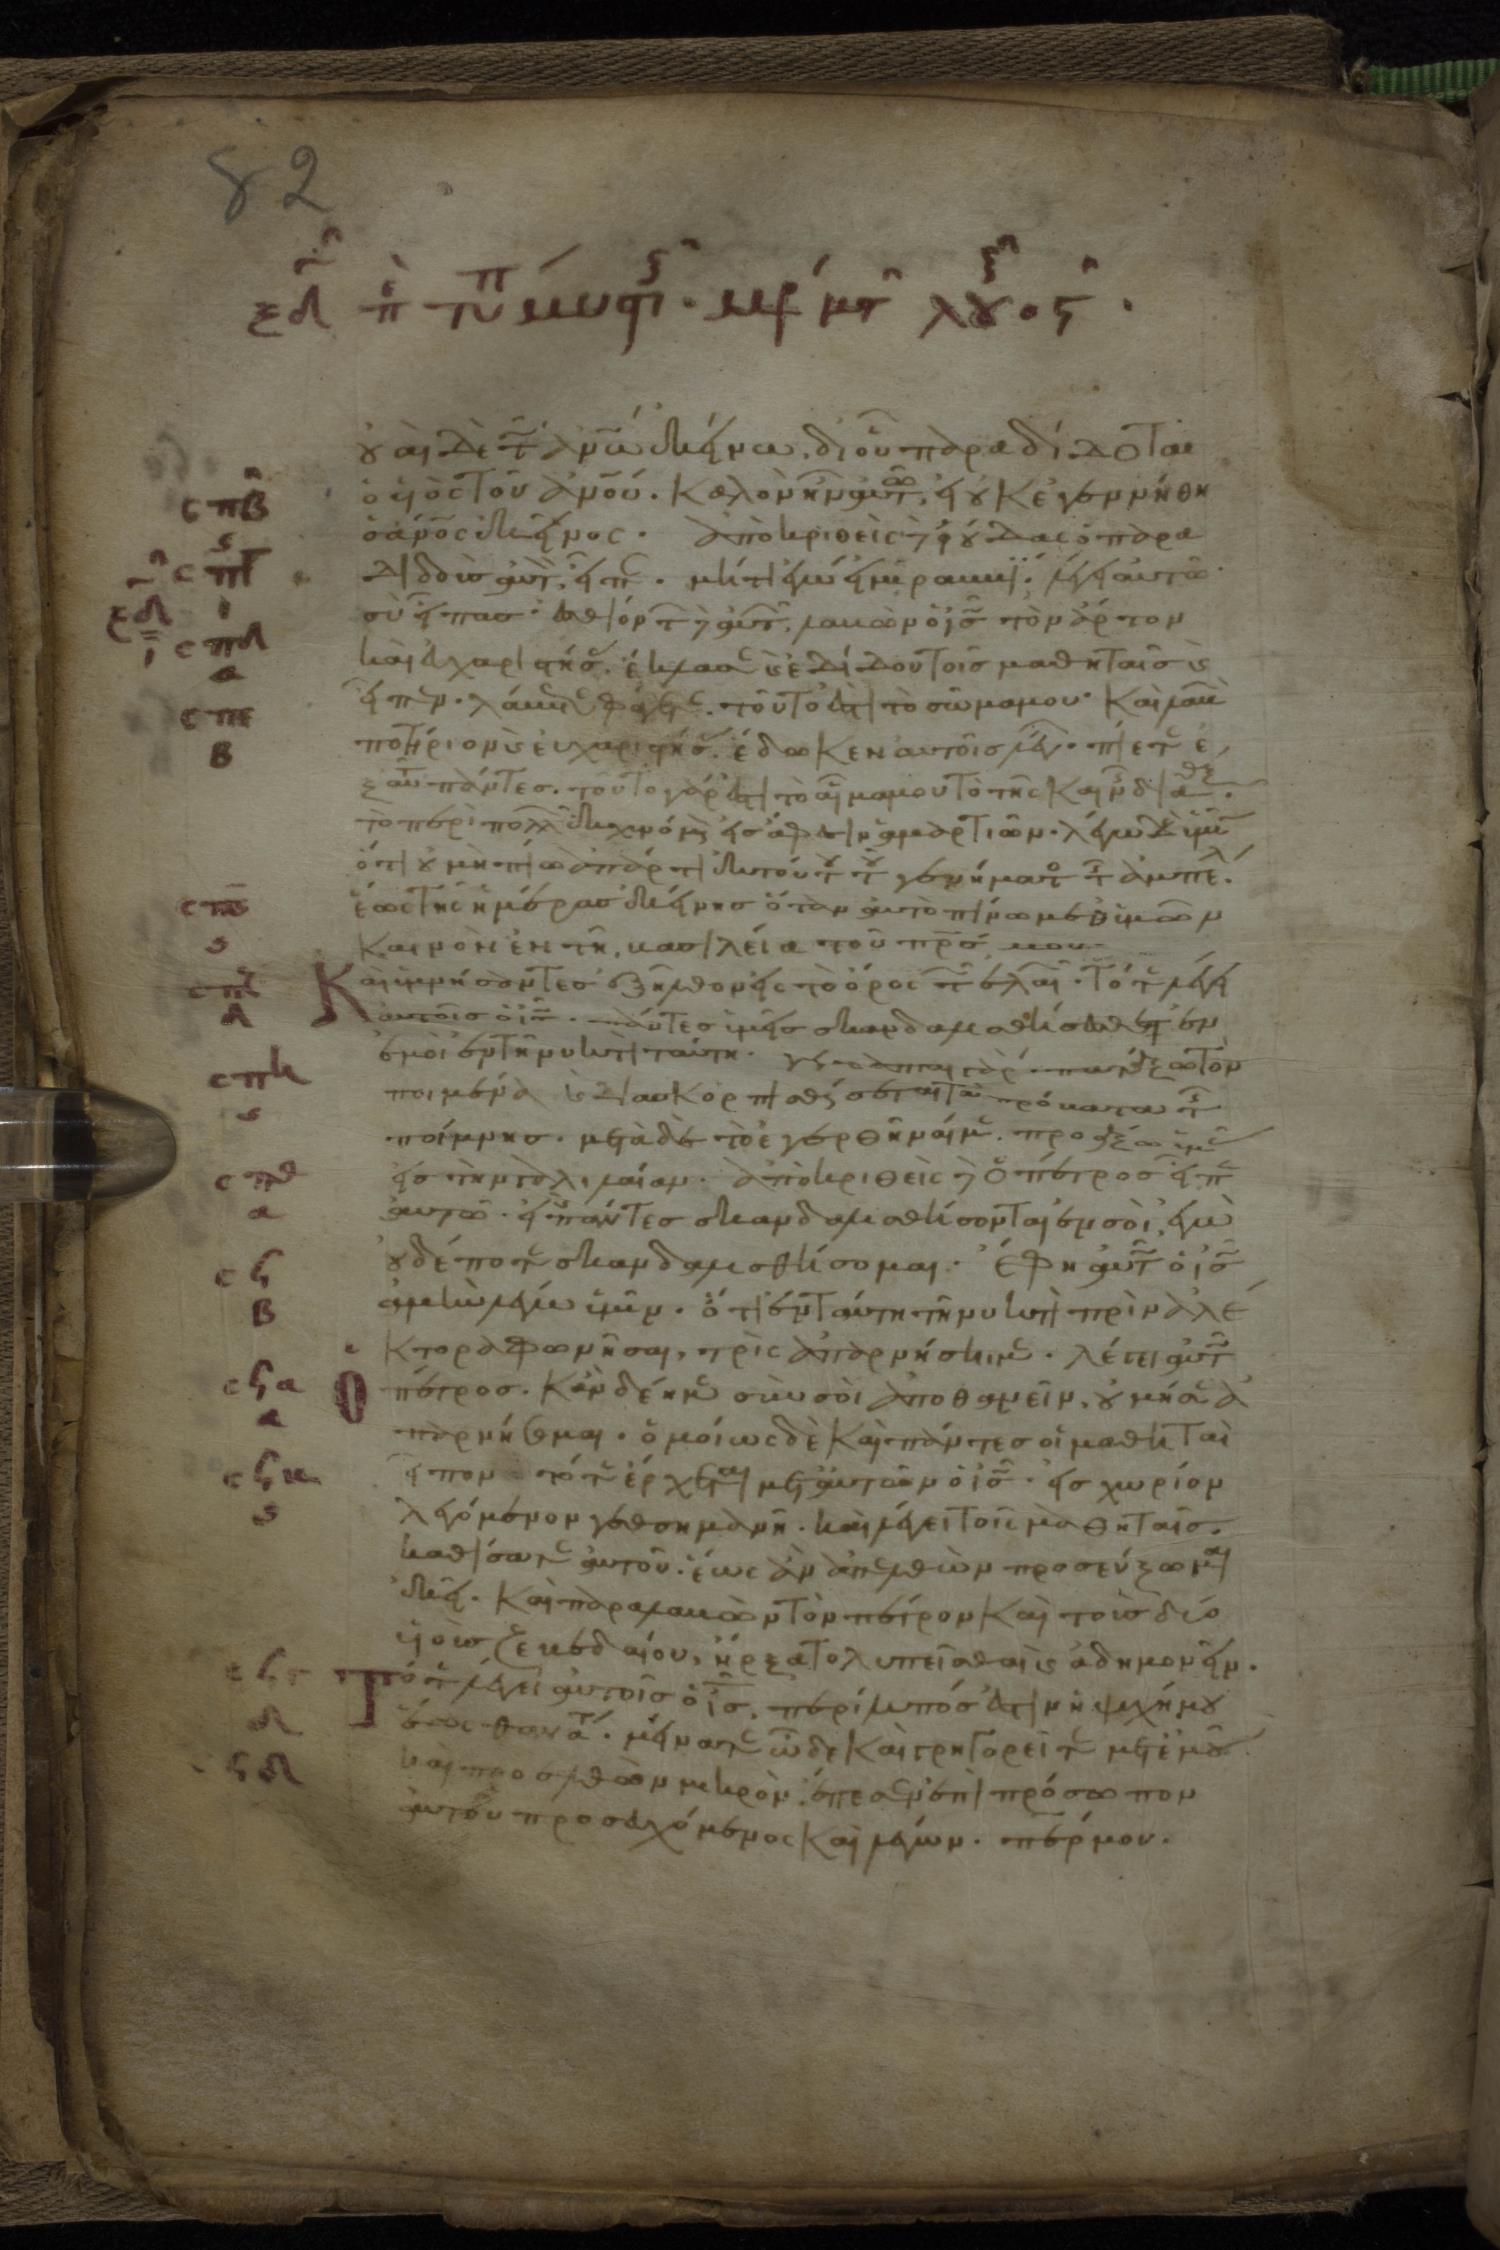 82
ξδ π τυ μυστ
οὐαὶ δὲ τ ἀνω ἐκείνω, δι οὗ παραδίδοται
ὁ υἱὸς τοῦ ἀνου. καλὸν ἦν αὐτ, εἰ οὐκ ἐγεννήθη
σπβ
ὁ ανος ἐκεῖνος. ἀποκριθεὶς ἰούδας ὁ παρα
ϛ
σπγ
διδοὺς αὐτ, εἶπ. μήτι ἐγώ εἰμι ραββί. λέγει αὐτῶ
ξδ
σὺ εἶπασ. ἐσθιόντ αὐτ, λαβὼν ὁ ις τὸν ἄρτον
σπδ
α
καὶ εὐχαριστήσ. ἔκλασ κ ἐδίδου τοῖς μαθηταῖς κ
σπε
εἶπεν. λάβετ φάγετ. τοῦτό ἐστι τὸ σῶμα μου. καὶ λαβ
β
ποτήριον κ εὐχαριστήσ. ἔδωκεν αὐτοῖς λέγ. πίετ ἐ
ξ αὐτ πάντες. τοῦτο γάρ ἐστι τὸ αἷμα μου τὸ τῆς καιν διαθ.
τὸ περὶ πολλ ἐκχυνόμ εἰς ἄφεσιν ἁμαρτιῶν. λέγω δ ὑμ
ὅτι οὐ μὴ πίω ἀπάρτι ἐκ τούτου τοῦ γεννήματ τ ἀμπέλ.
ἕως τῆς ἡμέρας ἐκείνης ὅταν αὐτὸ πίνω μεθ ὑμῶν
σπϛ
ϛ
καινὸν ἐν τῆ βασιλεία τοῦ πρς μου
σπζ
Καὶ ὑμνήσαντες ἐξῆλθον εἰς τὸ ὄρος τ ἐλαι. τότ λέγει
δ
αὐτοῖς ὁ ις. πάντες ὑμεῖς σκανδαλισθήσεσθ ἐν
ἐμοὶ ἐν τῆ νυκτὶ ταύτη. γέγραπται γάρ. πατάξω τὸν
σπη
ϛ
ποιμένα κ διασκορπισθήσεται τὰ πρόβατα τ
ποίμνης. μετὰ δὲ τὸ ἐγερθῆναί μ. προάξω ὑμ
σπθ
εἰς τὴν γαλιλαίαν. ἀποκριθεὶς ὁ πέτρος εἶπ
α
αὐτῶ. εἰ πάντες σκανδαλισθήσονται ἐν σοὶ, ἐγὼ
σϟ
οὐδέποτ σκανδαλισθήσομαι. ἔφη αὐτ ὁ ις
β
ἀμὴν λέγω ὑμῖν. ὅτι ἐν ταύτη τῆ νυκτὶ πρὶν ἀλέ
κτορα φωνῆσαι, τρὶς ἀπαρνήση μ. λέγει αὐτ
σϟα
α
Ὁ πέτρος. κἂν δέη μ σὺν σοὶ ἀποθανεῖν, οὐ μή σ ἀ
παρνήσομαι. ὁμοίως δὲ καὶ πάντες οἱ μαθηταὶ
σϟβ
ϛ
εἶπον τότ ἔρχεται μετ αὐτῶν ὁ ις. εἰς χωρίον
λεγόμενον γεθσημανῆ. καὶ λέγει τοῖς μαθηταῖς.
καθίσατ αὐτοῦ. ἕως ἂν ἀπελθὼν προσεύξωμαι
ἐκεῖ. καὶ παραλαβὼν τὸν πέτρον καὶ τοὺς δύο
υἱοὺς ζεβεδαίου, ἤρξατο λυπεῖσθαι κ ἀδημονεῖν.
σϟγ
δ
Τότ λέγει αὐτοῖς ὁ ις, περίλυπός ἐστιν ἡ ψυχή μου
ἕως θανάτ. μείνατ ὧδε καὶ γρηγορεῖτ μετ ἐμοῦ
ϟδ
καὶ προσελθὼν μικρὸν, ἔπεσεν ἐπὶ πρόσωπον
αὐτοῦ προσευχόμενος καὶ λέγων. περ μου.